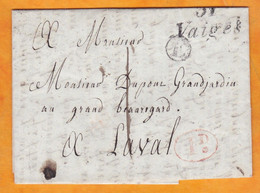 51
Vaiges
A Monsieur
1
Monsieur Dupont Grandjardin
au grand beauregard.
A Laval
1D